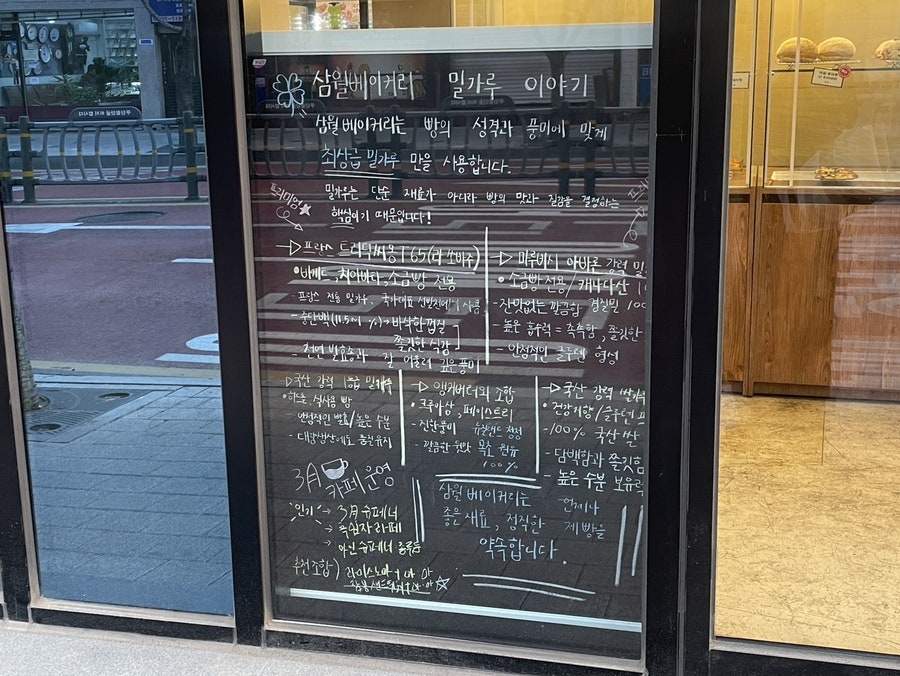 삼월베이커리 밀가루 이야기
삼월 베이커리는 빵의 성격과 풍미에 맞게
최상급 밀가루 만을 사용합니다.
프리미엄
밀가루는 단순 재료가 아니라 빵의 맛과 질감을 결정하는
핵심이기 때문입니다!
▷프랑스 트라디씨옹T65(라 쏘바쥬)
•바게트, 치아바타, 소금빵 전용
- 프랑스 전통 밀가루, 국가대표 선발전에서 사용
- 중단백(11.5~1 %)→바삭한껍질
쫄깃한 식감
- 천연 발효종과 잘 어울려 깊은풍미
▷ 미루비시 아바론 강력 밀
•소금빵 전용/캐나다산
- 잔맛없는 깔끔함 경질밀 100
- 높은 흡수력 = 촉촉함, 쫄깃한
- 안정적인 글루텐 형성
▷국산 강력 1등급 밀가루
•하드, 식사용 빵
안정적인 발효/높은 수분
- 대량생산에도 품질유지
▷ 앵커버터의 조합
•크루아상, 페이스트리
- 진한풍미 뉴질랜드 청정
- 깔끔한 뒷맛 목초 원유
100%
▷국산 강력 쌀가루
•건강지향/글루텐프
-100% 국산 쌀
- 담백함과 쫄깃함
- 높은 수분 보유력
3月 카페 운영
인기→ 3月 슈페너
→ 흑임자라페
→ 아인슈페너 종류들
추천조합)
삼월 베이커리는 언제나
좋은 재료, 정직한 제빵을
약속합니다.